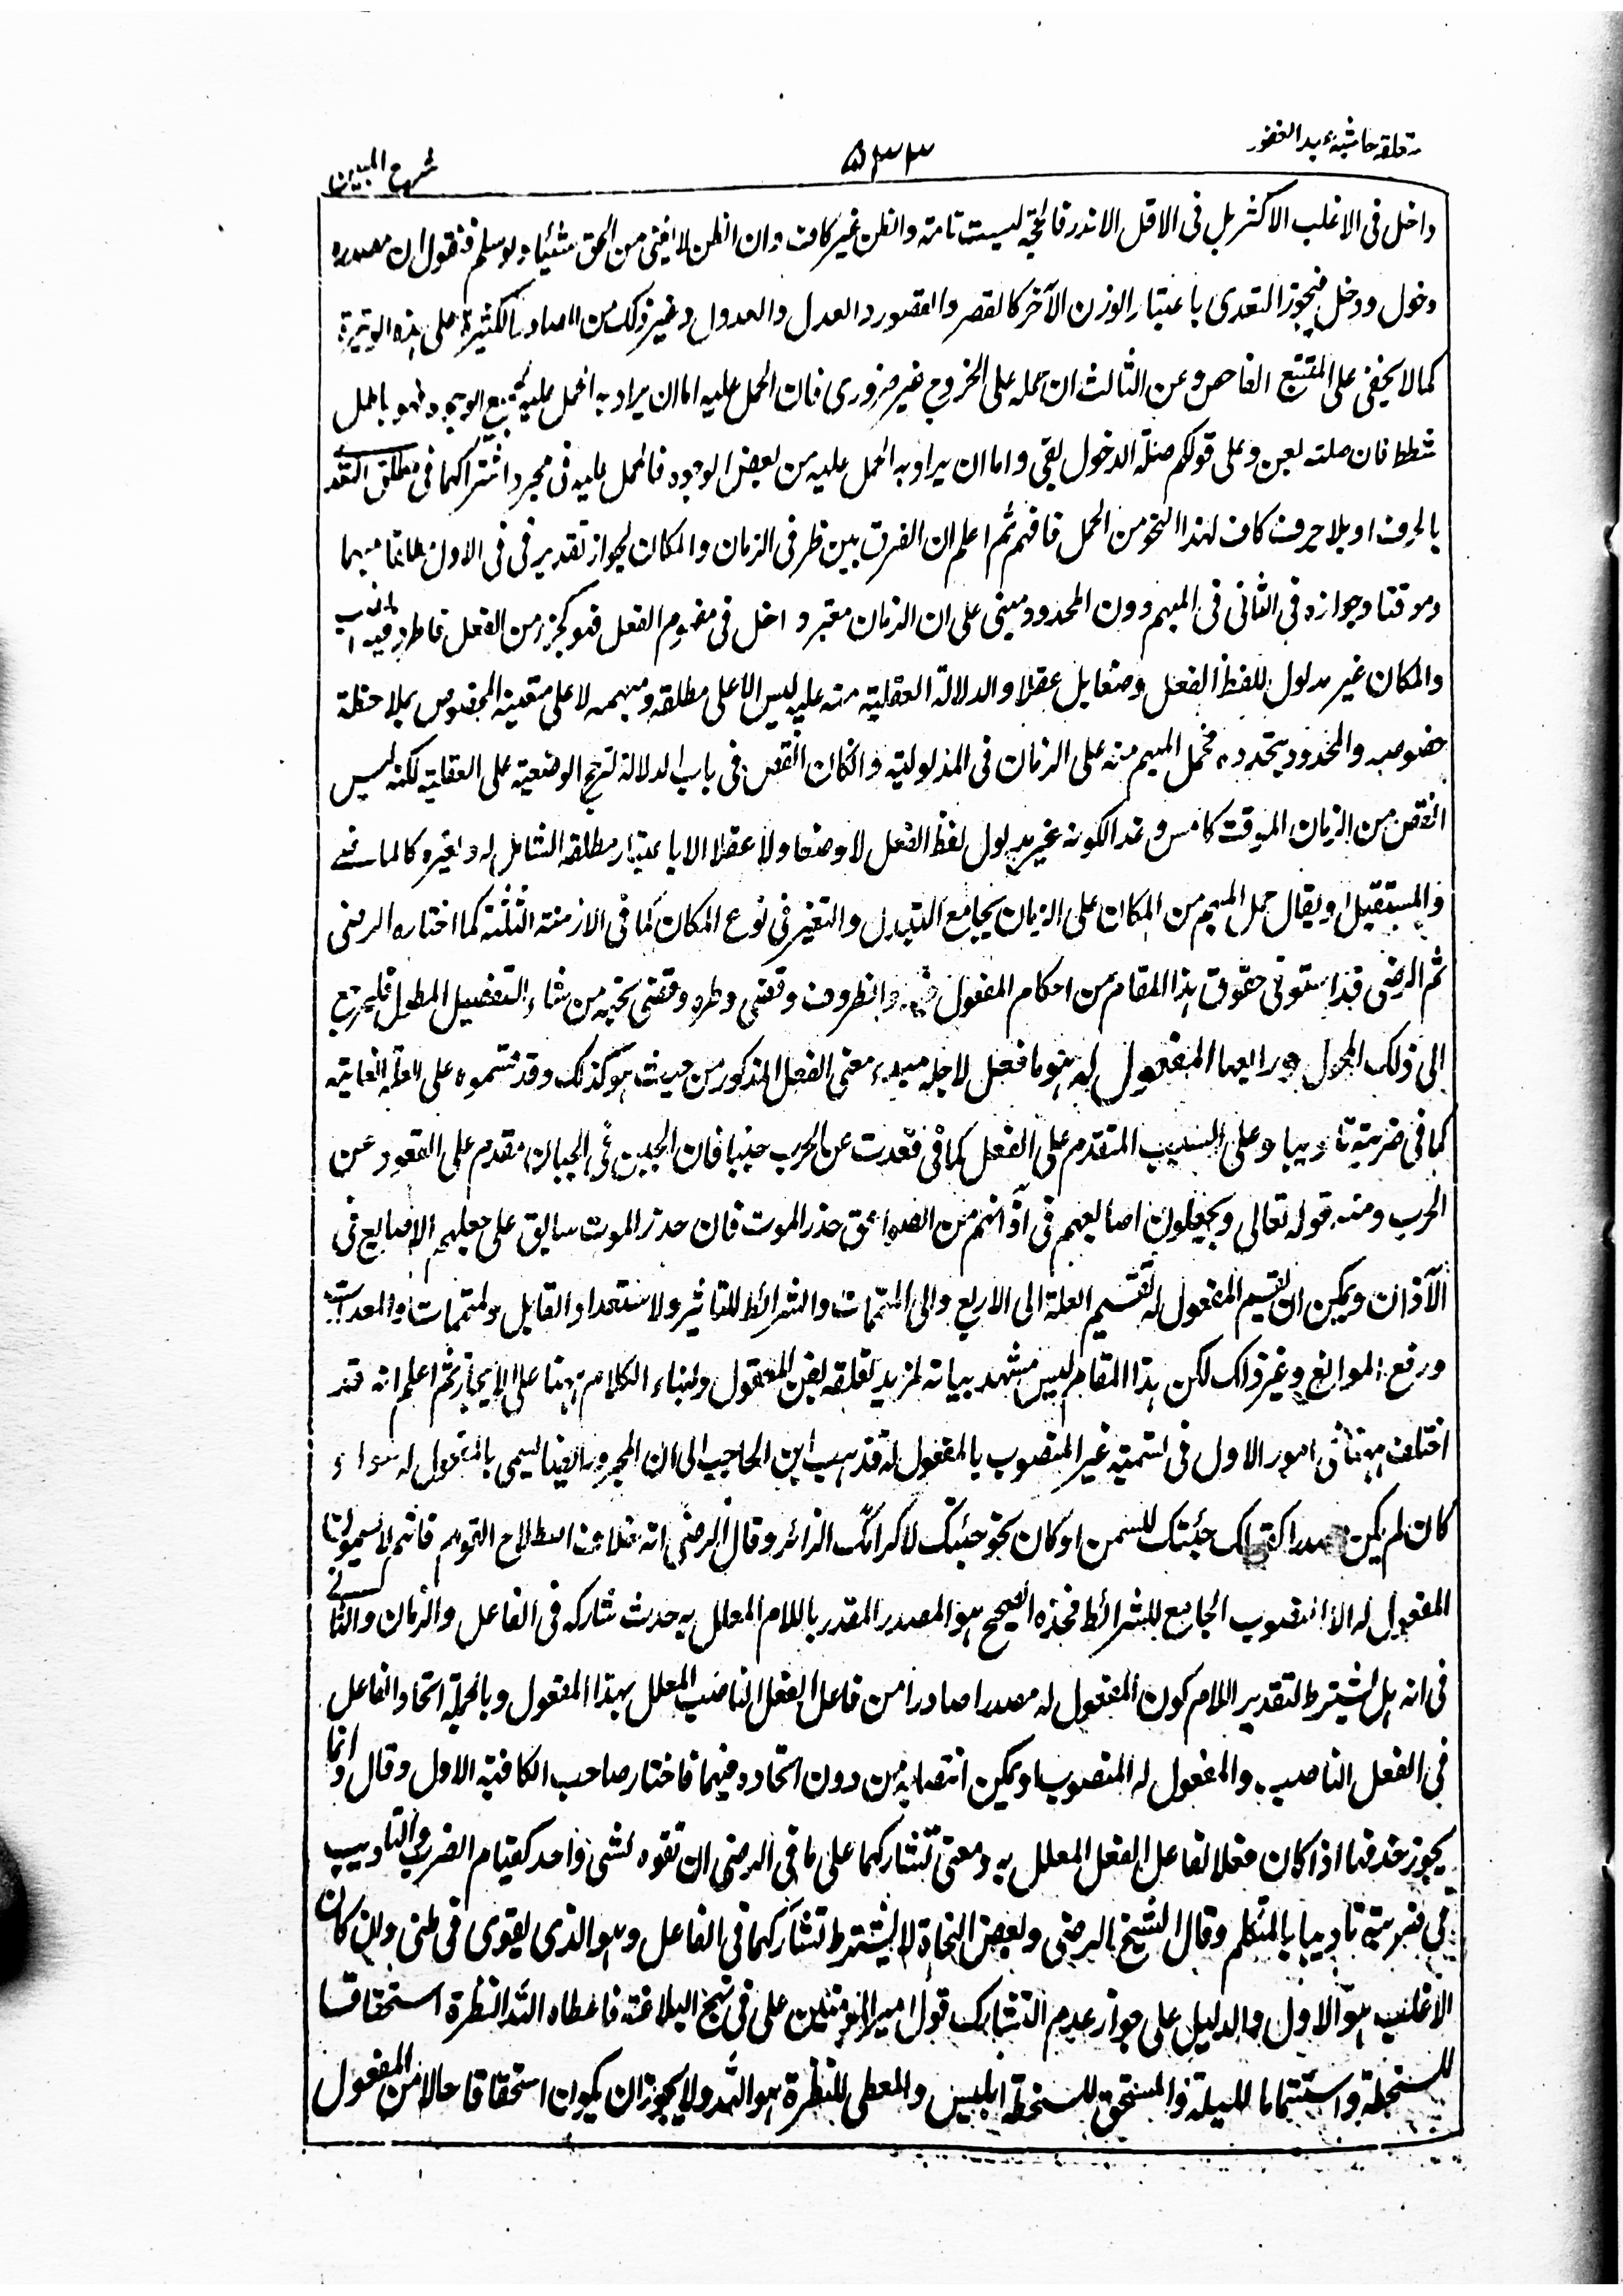 متعلقہ حاشیہ عبد الغفور
۵۳۳
شرح المبین
داخل فی الاغلب الاکثر بل فی الاقل الاندر فالحجۃ لیست تامۃ والظن غیر کاف وان الظن لا یغنی من الحق شیئا ولو سلم فنقول ان مصدرہ
دخول ودخل فیجوز التعدی باعتبار الوزن الآخر کالقصر والقصور والعدل والعدول وغیر ذلک من المصادر الکثیرۃ علی ہذہ الوتیرۃ
کما لا یخفی علی المتتبع الفاحص وعن الثالث ان حملہ علی الخروج غیر ضروری فان الحمل علیہ اما ان یراد بہ الحمل علیہ بجمیع الوجوہ فہو باطل
شطط فان صلتہ بعن وعلی قولکم صلۃ الدخول بقی واما ان یراد بہ الحمل علیہ من بعض الوجوہ فالحمل علیہ فی مجرد اشتراکہما فی مطلق التعدی
بالحرف او بلا حرف کاف لہذا النحو من الحمل فافہم ثم اعلم ان الفرق بین ظرفی الزمان والمکان لجواز تقدیر فی فی الاول مطلقا مبہما
وموقتا وجوازہ فی الثانی فی المبہم دون المحدود مبنی علی ان الزمان معتبر داخل فی مفہوم الفعل فہو کجزء من الفعل فاطرد فیہ النصب
والمکان غیر مدلول للفظ الفعل وضعا بل عقلا والدلالۃ العقلیۃ منہ علیہ لیس الا علی مطلقہ ومبہمہ لا علی متعینہ المخصوص بملاحظۃ
خصوصہ والمحدود بتحددہ فحمل المبہم منہ علی الزمان فی المدلولیۃ وان کان انقص فی باب الدلالۃ لترجح الوضعیۃ علی العقلیۃ لکنہ لیس
انقص من الزمان الموقت کامس وغد الکونہ غیر مدلول لفظ الفعل لا وضعا ولا عقلا الا باعتبار مطلقہ الشامل لہ ولغیرہ کالماضی
والمستقبل او یقال حمل المبہم من المکان علی الزمان بجامع التبدل والتغیر فی نوع المکان کما فی الازمنۃ الثلثۃ کما اختارہ الرضی
ثم الرضی قد استوفی حقوق ہذا المقام من احکام المفعول فیہ والظروف وقضی وطرہ وقضی نحبہ من شاء التفصیل المطول فلیرجع
الی ذلک المجال ورابعہا المفعول لہ ہو ما فعل لاجلہ مبدء معنی الفعل المذکور من حیث ہو کذلک وقد قسموہ علی العلۃ الغائیۃ
کما فی ضربتہ تادیبا وعلی السبب المتقدم علی الفعل کما فی قعدت عن الحرب جبنا فان الجبن فی الجبان مقدم علی القعود عن
الحرب ومنہ قولہ تعالی ویجعلون اصابعہم فی آذانہم من الصواعق حذر الموت فان حذر الموت سابق علی جعلہم الاصابع فی
الآذان ویمکن ان یقسم المفعول لہ تقسیم العلۃ الی الاربع والی المتممات والشرائط للتاثیر ولاستعداد القابل ولمتممات والمعدات
ورفع الموانع وغیر ذلک لکن ہذا المقام لیس مشہد بیانہ لمزید تعلقہ بفن المعقول ولبناء الکلام ہہنا علی الایجاز ثم اعلم انہ قد
اختلف ہہنا فی امور الاول فی تسمیۃ غیر المنصوب بالمفعول لہ فذہب ابن الحاجب الی ان المجرور ایضا یسمی بالمفعول لہ سواء
کان لم یکن مصدرا کقولک جئتک للسمن او کان نحو جئتک لاکرامک الزائر وقال الرضی انہ خلاف اصطلاح القوم فانہم لا یسمون
المفعول لہ الا المنصوب الجامع للشرائط فحدہ الصحیح ہو المصدر المقدر باللام المعلل بہ حدث شارکہ فی الفاعل والزمان والثانی
فی انہ ہل یشترط لتقدیر اللام کون المفعول لہ مصدرا صادرا من فاعل الفعل الناصب المعلل بہذا المفعول وبالجملۃ اتحاد الفاعل
فی الفعل الناصب والمفعول لہ المنصوب او یمکن انتصابہ من دون اتحادہ فیہما فاختار صاحب الکافیۃ الاول وقال وانما
یجوز حذفہا اذا کان فعلا لفاعل الفعل المعلل بہ ومعنی تشارکہما علی ما فی الرضی ان تقوہ لشی واحد کقیام الضرب والتادیب
فی ضربتہ تادیبا بالمتکلم وقال الشیخ الرضی وبعض النحاۃ لا یشترط تشارکہما فی الفاعل وہو الذی یقوی فی ظنی وان کان
الاغلب ہو الاول والدلیل علی جواز عدم التشارک قول امیر المؤمنین علی فی نہج البلاغۃ فاعطاہ اللہ النظرۃ استحقاقا
للسخطۃ واستتماما للبلیۃ والمستحق للسخطۃ ابلیس والمعطی للنظرۃ ہو اللہ ولا یجوز ان یکون استحقاقا حالا من المفعول